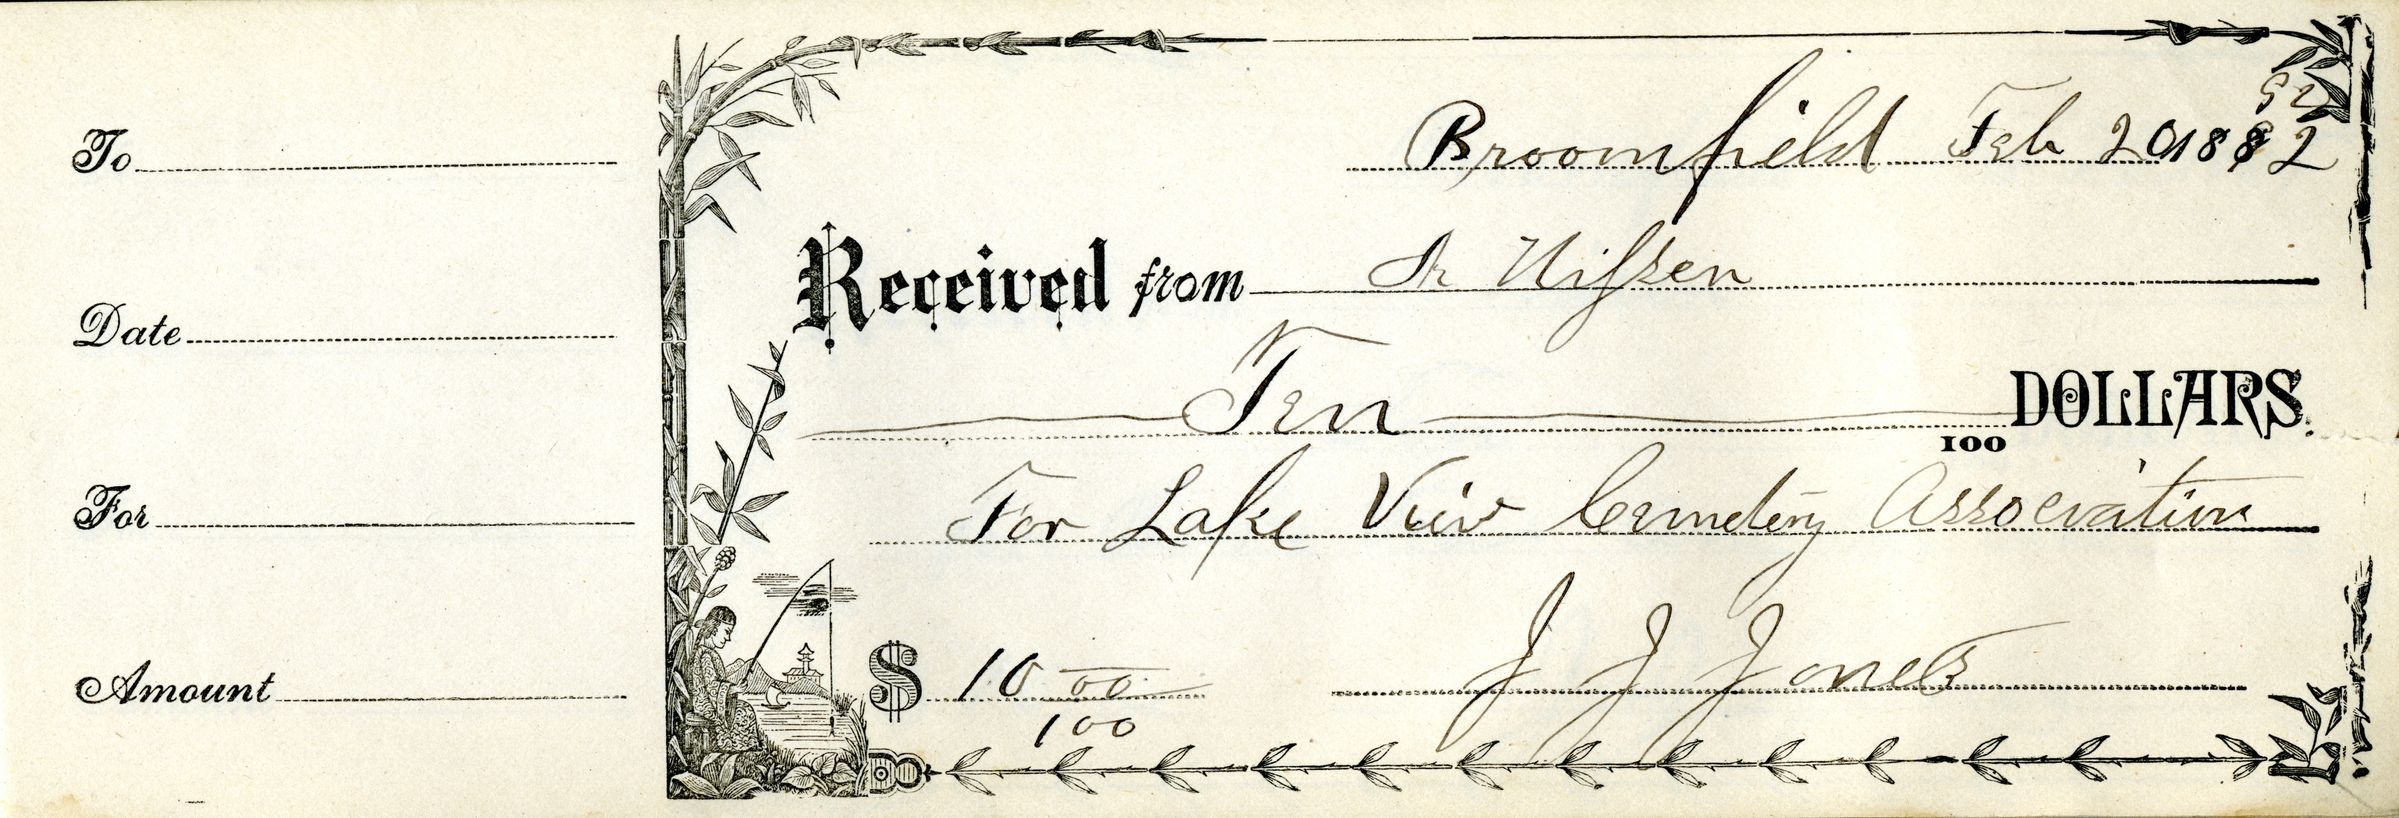 To
Date
For
Amount
Broomfield Feb 20 1882
92
Received from Nissen
Ten DOLLARS.
100
For Lake View Cemetery Association
$ 10 00
100
J J Jones